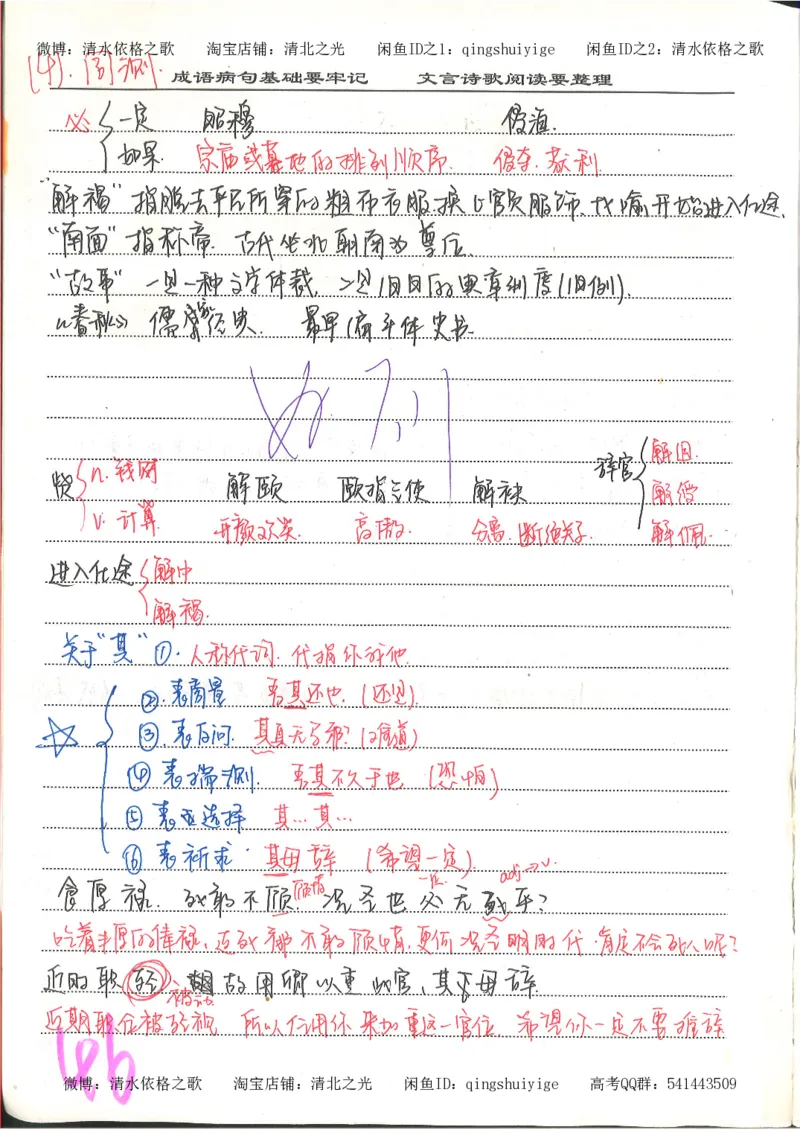 微博：清水依格之歌 淘宝店铺：清北之光 闲鱼ID之1：qingshuiyige 闲鱼ID之2：清水依格之歌
(4).
成语病句基础要牢记 文言诗歌阅读要整理
必 一定 昭穆 假道.
如果. 宗庙或墓地的排列顺序. 假 利
"解褐" 指脱去平民所穿的粗布衣服换上官员服饰、比喻开始进入仕途.
"南面" 指称帝. 古代坐北朝南为尊位.
"故事" 一是一种文字体裁, 二是旧日的典章制度(旧例).
《春秋》 儒家经典. 最早编年体史书.
n. 钱财 解颐 颐指气使 解袂 辞官 解印.
v. 计算 开颜欢笑. 高傲. 分离. 断绝关系. 解绶
解佩.
进入仕途 解巾
解褐.
关于"其" ①. 人称代词. 代指你我他.
②. 表商量 吾其还也. (还是).
③. 表反问. 其真无马邪? (难道)
④ 表揣测. 吾其不久于也 (恐怕)
⑤ 表选择 其…其…
⑥ 表祈求 其毋辞 (希望一定).
食厚禄. 死敢不顾. 顾惜 况圣世必无死乎? 一定 adj→v.
吃着丰厚的俸禄, 连死都不敢顾惜, 更何况圣明时代. 肯定不会死人呢?
近时职轻, 故用卿以重此官, 其毋辞.
被动
近期职位被轻视 所以任用你来加重这一官位 希望你一定不要推辞
微博：清水依格之歌 淘宝店铺：清北之光 闲鱼ID：qingshuiyige 高考QQ群：541443509